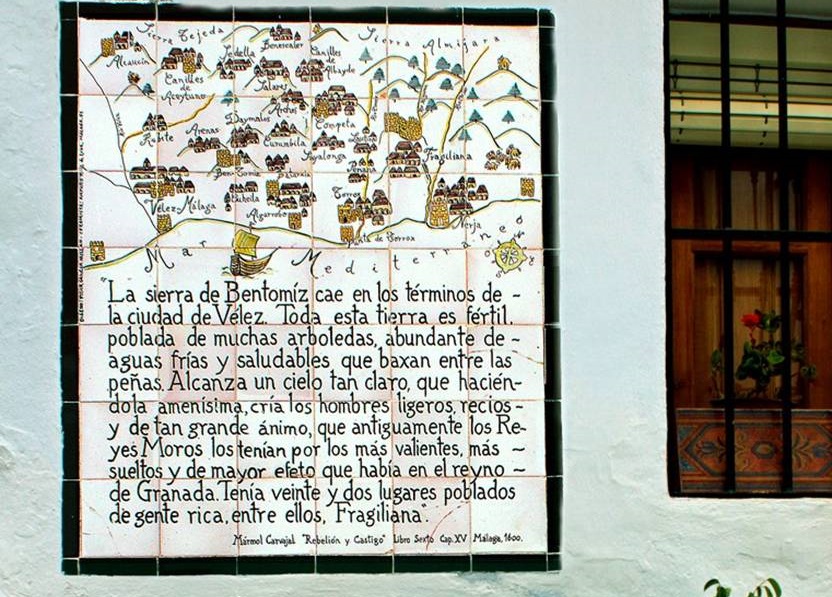 Sierra Tejeda
Sierra Almijara
Alcaucín
Canilles de Aceytuno
Sedella
Benescaler
Canilles de Albayde
Salares
Archez
Competa
Rubite
Arenas
Daymalos
Curumbila
Sayalonga
Fragiliana
Ben-Tomiz
Vélez-Málaga
Algarrobo
Torrox
Punta de Torrox
Nerja
Mar Mediterraneo
"La sierra de Bentomíz cae en los términos de -
la ciudad de Vélez. Toda esta tierra es fértil,
poblada de muchas arboledas, abundante de -
aguas frías y saludables que baxan entre las
peñas. Alcanza un cielo tan claro, que hacién-
dola amenísima, cría los hombres ligeros, recios -
y de tan grande ánimo, que antiguamente los Re-
yes Moros los tenían por los más valientes, más -
sueltos y de mayor efeto que había en el reyno -
de Granada. Tenía veinte y dos lugares poblados
de gente rica, entre ellos, Fragiliana".
Mármol Carvajal "Rebelión y Castigo" Libro Sexto Cap. XV Málaga, 1600.